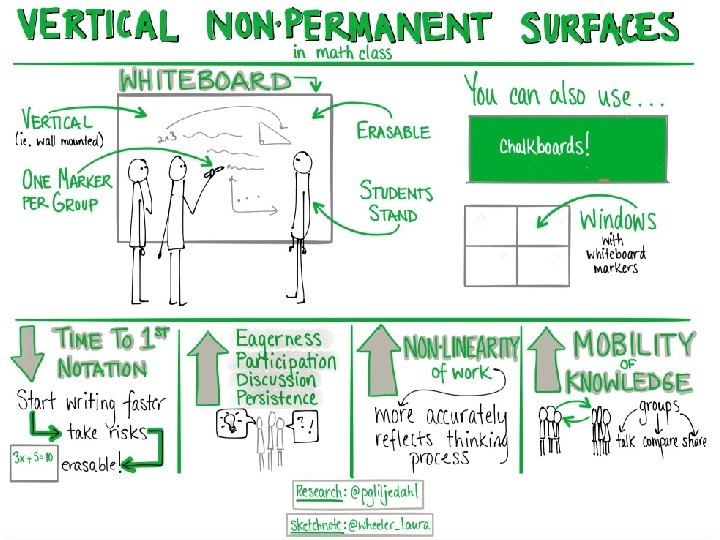 VERTICAL NON-PERMANENT SURFACES
in math class
WHITEBOARD
You can also use...
VERTICAL
(ie, wall mounted)
ERASABLE
2x3
Chalkboards!
ONE MARKER
PER GROUP
STUDENTS
STAND
Windows
with
whiteboard
markers
TIME TO 1ST
NOTATION
Start writing faster
take risks
3x+5=10
erasable!
Eagerness
Participation
Discussion
Persistence
?!
NON-LINEARITY
of work
more accurately
reflects thinking
process
MOBILITY
OF
KNOWLEDGE
groups
talk compare share
Research: @pgliljedahl
Sketchnote: @wheeler_laura